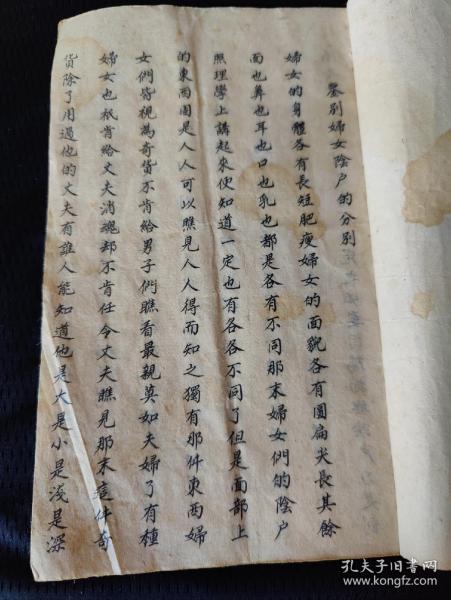 鉴别婦女陰户的分别
婦女的身體各有長短肥瘦婦女的面貌各有圓扁尖長其餘
面也鼻也耳也口也乳也都是各有不同那末婦女們的陰户
照理學上講起來便知道一定也有各各不同了但是面部上
的東西因是人人可以瞧見人人得而知之獨有那件東西婦
女們皆視為奇貨不肯給男子們瞧看最親莫如夫婦了有種
婦女也祇肯給丈夫消魂却不肯任令丈夫瞧見那末這件奇
貨除了用過他的丈夫有誰人能知道他是大是小是淺是深
孔夫子旧书网
www.kongfz.com